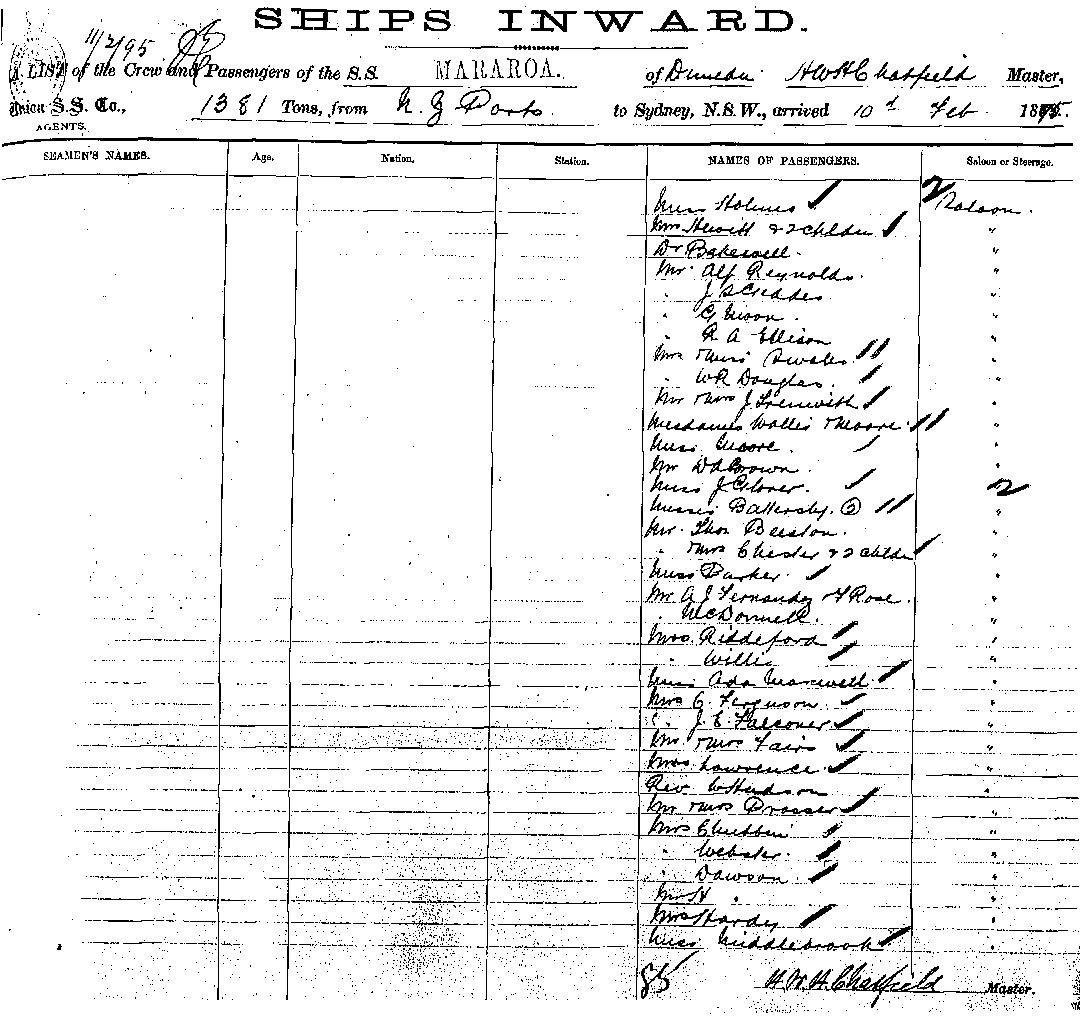 SHIPS INWARD.
11/2/95
A LIST of the Crew and Passengers of the S.S. MARAROA. of Dunedin H W H Chatfield Master,
Union S.S. Co., 1381 Tons, from N. Z Ports to Sydney, N.S.W., arrived 10th Feb 1895.
AGENTS.
SEAMEN'S NAMES. Age. Nation. Station. NAMES OF PASSENGERS. Saloon or Steerage.
Miss Holmes 2 Saloon.
Mrs Hewitt & 2 childn "
Dr Bakewell. "
Mr Alf Reynolds. "
" J S Geddes "
" G Moon. "
" R A Ellison "
Mrs & Miss Swales "
" W R Douglas. "
Mr & Mrs J Trenwith "
Mesdames Wallis & Moore. "
Miss Moore. "
Mr D A Brown. "
Miss J Glover. 2
Misses Battersby. ② "
Mr. Thos Beeston. "
" & Mrs Chester & 2 childn "
Miss Parker. "
Mr A J Fernandez & Rose. "
" McDonnell. "
Mrs. Riddeford "
" Willis "
Miss Ada Maxwell. "
Mrs C. Ferguson. "
" J. E. Falconer "
Mr & Mrs Fairs "
Mrs Lawrence. "
Rev. W Hudson "
Mr & Mrs Prosser "
Mrs Chubbin "
" Webster. "
" Dawson "
Mr H " "
Mrs Hardy "
Miss Middlebrook "
85 H. W. H. Chatfield Master.